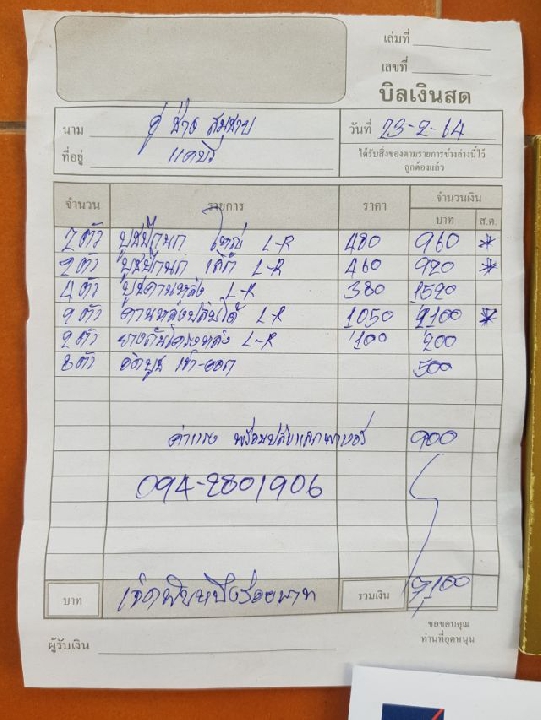 เล่มที่
เลขที่
บิลเงินสด
นาม อู่ ช่าง สมชาย
วันที่ 23-2-14
ที่อยู่
ได้รับสิ่งของตามรายการข้างล่างนี้ไว้
ถูกต้องแล้ว
จำนวน รายการ ราคา จำนวนเงิน
บาท ส.ต.
2 ตัว บูชปีกนก ใหญ่ L-R 480 960
2 ตัว บูชปีกนก เล็ก L-R 460 920
4 ตัว บูชคานหลัง L-R 380 1520
2 ตัว คานหลังปรับได้ L-R 1050 2100
2 ตัว ยางกันโคลงหลัง L-R 100 200
8 ตัว อัดบูช เข้า-ออก 500
ค่าแรง พร้อม 900
094-2801906
บาท เจ็ดพันหนึ่งร้อยบาท รวมเงิน 7100
ผู้รับเงิน
ขอขอบคุณ
ท่านที่อุดหนุน